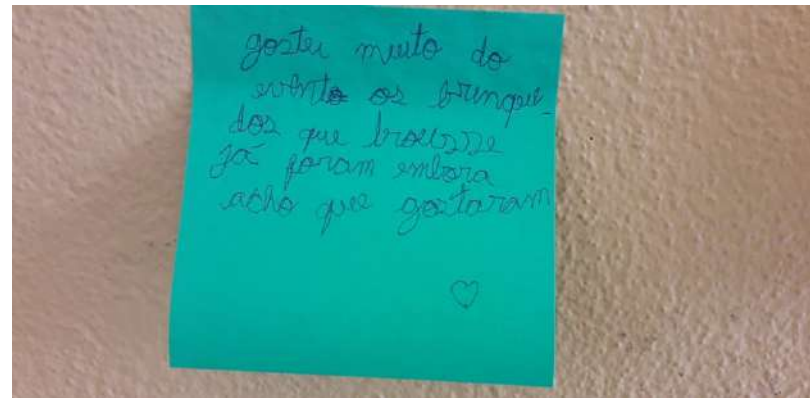 gostei muito do
evento os brinque-
dos que trousse
já foram embora
acho que gostaram